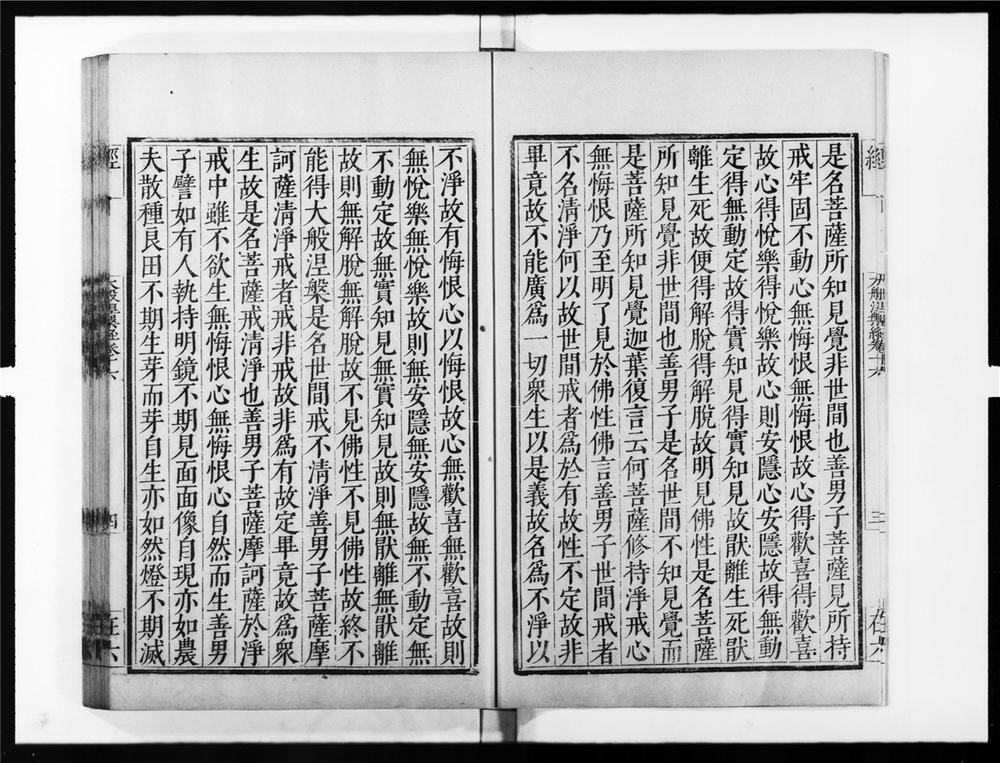 是名菩薩所知見覺非世間也善男子菩薩見所持
戒牢固不動心無悔恨無悔恨故心得歡喜得歡喜
故心得悅樂得悅樂故心則安隱心安隱故得無動
定得無動定故得實知見得實知見故猒離生死猒
離生死故便得解脫得解脫故明見佛性是名菩薩
所知見覺非世間也善男子是名世間不知見覺而
是菩薩所知見覺迦葉復言云何菩薩修持淨戒心
無悔恨乃至明了見於佛性佛言善男子世間戒者
不名清淨何以故世間戒者為於有故性不定故非
畢竟故不能廣為一切衆生以是義故名為不淨以
不淨故有悔恨心以悔恨故心無歡喜無歡喜故則
無悅樂無悅樂故則無安隱無安隱故無不動定無
不動定故無實知見無實知見故則無猒離無猒離
故則無解脫無解脫故不見佛性不見佛性故終不
能得大般涅槃是名世間戒不清淨善男子菩薩摩
訶薩清淨戒者戒非戒故非為有故定畢竟故為衆
生故是名菩薩戒清淨也善男子菩薩摩訶薩於淨
戒中雖不欲生無悔恨心無悔恨心自然而生善男
子譬如有人執持明鏡不期見面面像自現亦如農
夫散種良田不期生芽而芽自生亦如然燈不期滅
經
四